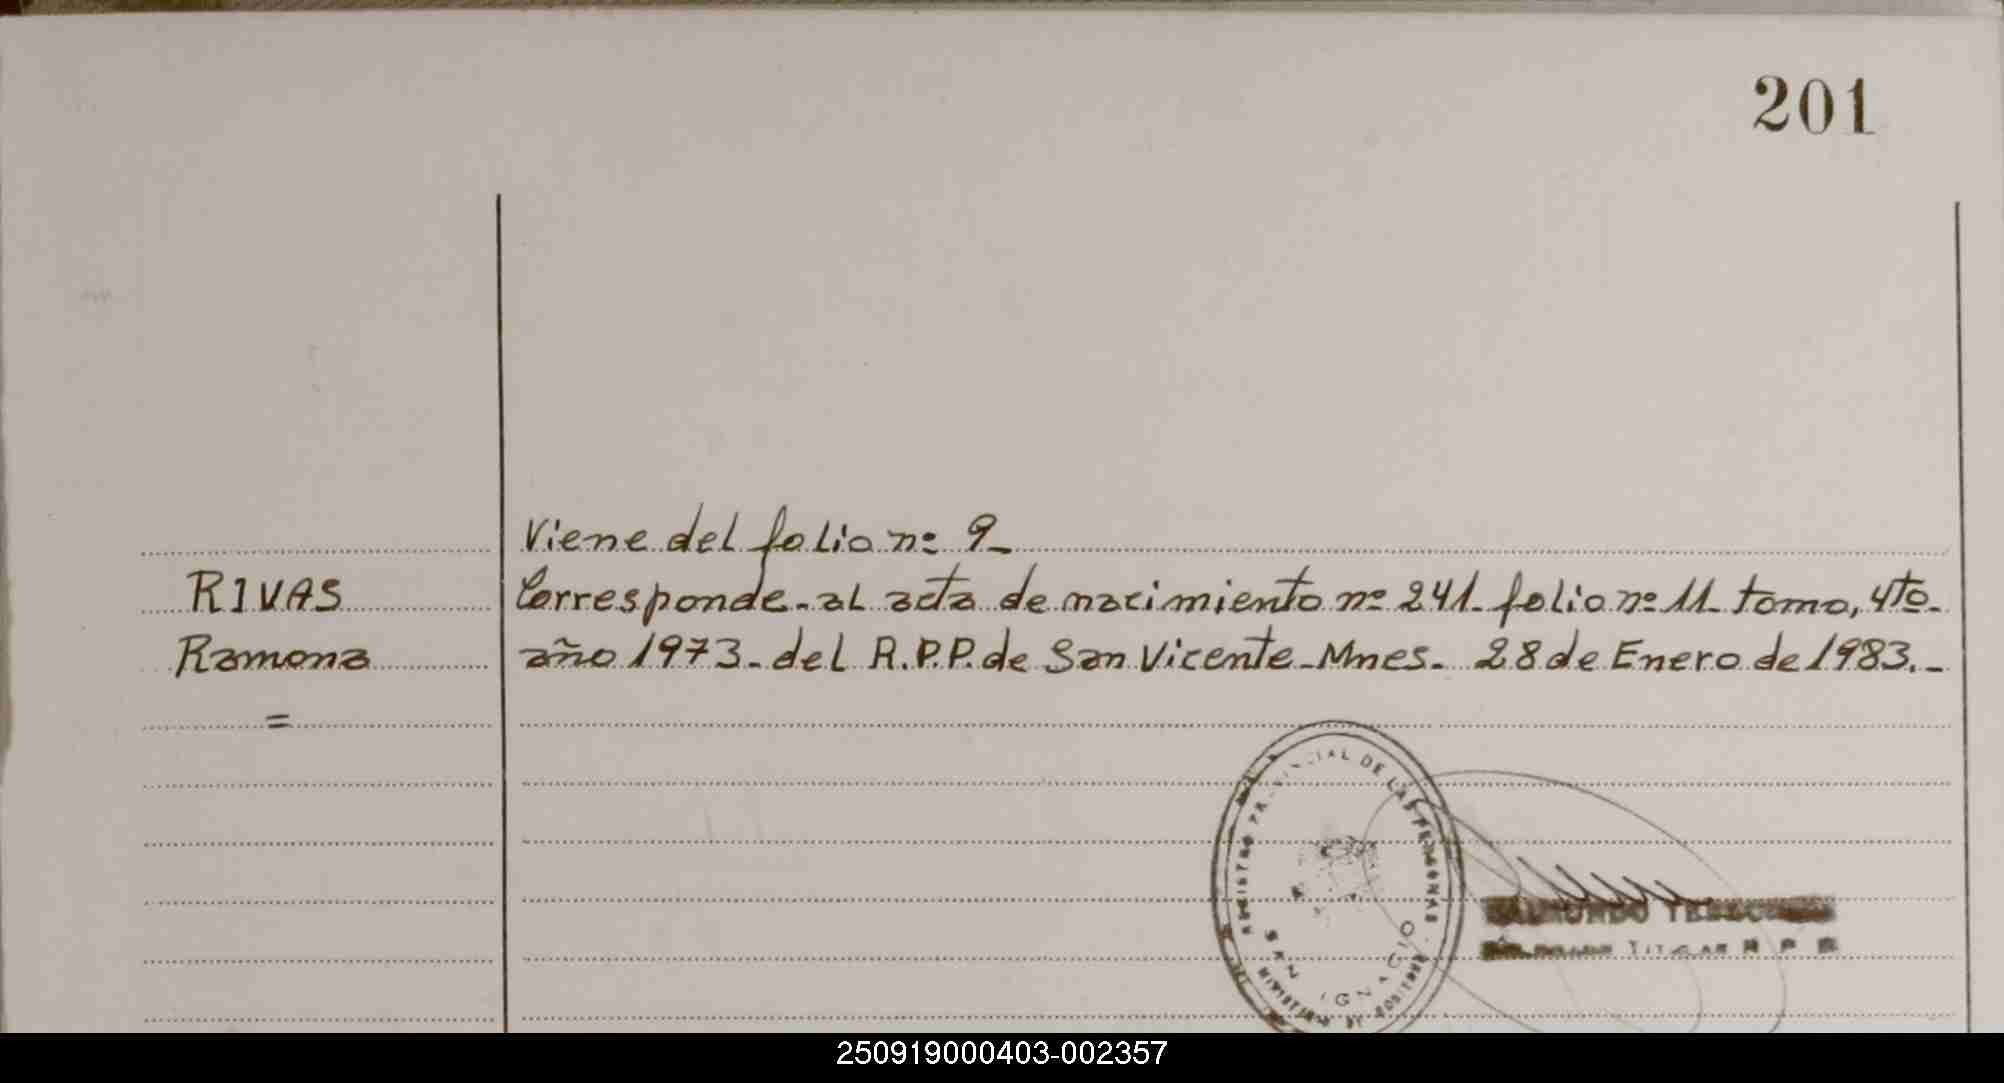 201
Viene del folio nº 9_
RIVAS
Corresponde-al acta de nacimiento nº 241- folio nº 11- tomo, 4to-
Ramona
año 1973-del R.P.P. de San Vicente-Mnes- 28 de Enero de 1983.-
=
REGISTRO PROVINCIAL DE LAS PERSONAS
SAN IGNACIO
MINISTERIO DE GOBIERNO
RAIMUNDO
TITULAR R P P
250919000403-002357